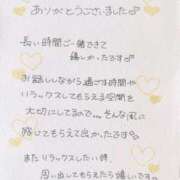 ありがとうございました♪
長い時間ご一緒できて
嬉しかったです!
お話ししながら過ごす時間や
リラックスしてもらえる空間を
大切にしてるので、そんな風に
感じてもらえて良かったです♡
またリラックスしたい時、
思い出してもらえたら嬉しいです。